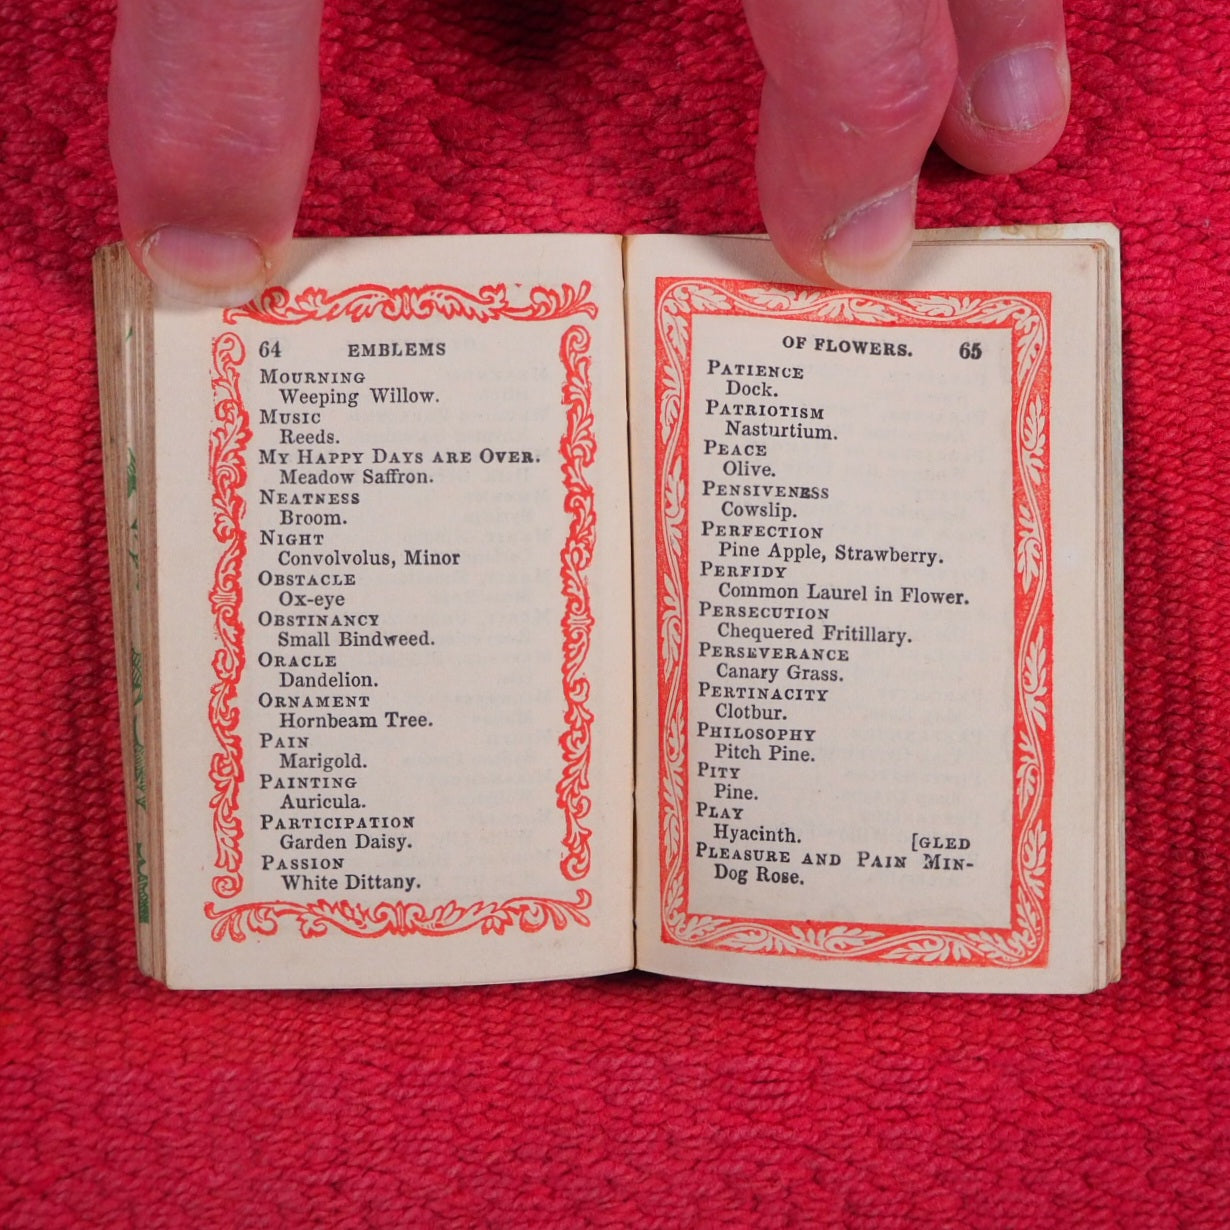 64 EMBLEMS
MOURNING
Weeping Willow.
MUSIC
Reeds.
MY HAPPY DAYS ARE OVER.
Meadow Saffron.
NEATNESS
Broom.
NIGHT
Convolvolus, Minor
OBSTACLE
Ox-eye
OBSTINANCY
Small Bindweed.
ORACLE
Dandelion.
ORNAMENT
Hornbeam Tree.
PAIN
Marigold.
PAINTING
Auricula.
PARTICIPATION
Garden Daisy.
PASSION
White Dittany.
OF FLOWERS. 65
PATIENCE
Dock.
PATRIOTISM
Nasturtium.
PEACE
Olive.
PENSIVENESS
Cowslip.
PERFECTION
Pine Apple, Strawberry.
PERFIDY
Common Laurel in Flower.
PERSECUTION
Chequered Fritillary.
PERSEVERANCE
Canary Grass.
PERTINACITY
Clotbur.
PHILOSOPHY
Pitch Pine.
PITY
Pine.
PLAY
Hyacinth. [GLED
PLEASURE AND PAIN MIN-
Dog Rose.